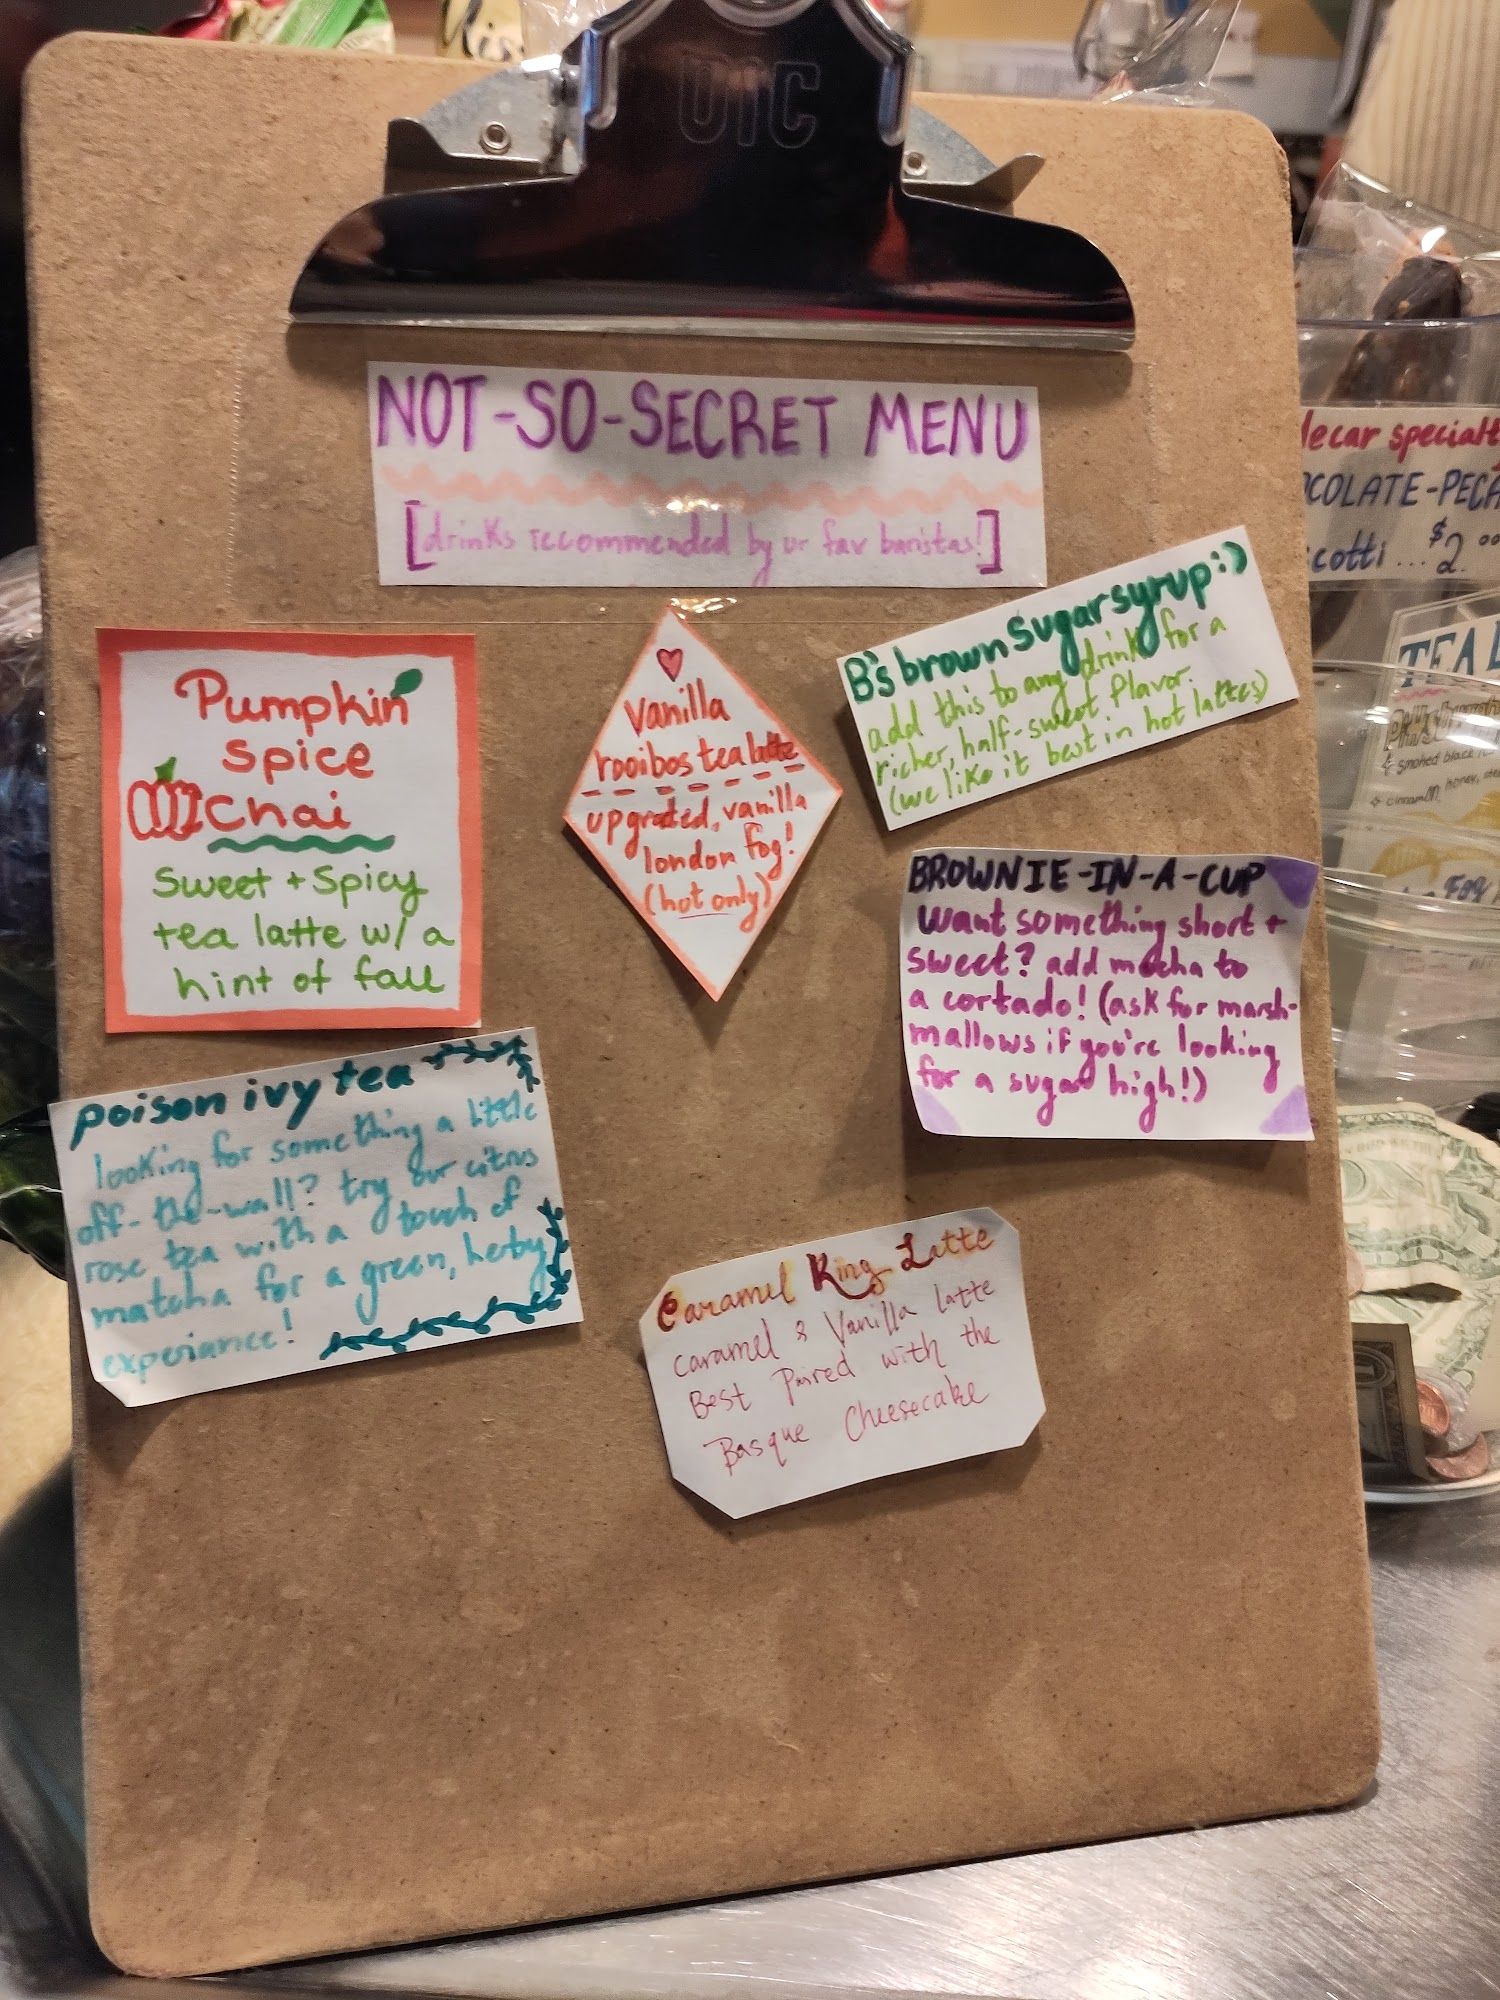 OIC
NOT-SO-SECRET MENU
[drinks recommended by ur fav baristas!]
Pumpkin
Spice
Chai
Sweet + Spicy
tea latte w/ a
hint of fall
vanilla
rooibos tea latte
upgrated, vanilla
london fog!
(hot only)
B's brown sugar syrup :)
add this to any drink for a
richer, half-sweet flavor.
(we like it best in hot lattes)
BROWNIE-IN-A-CUP
want something short +
sweet? add mocha to
a cortado! (ask for marsh-
mallows if you're looking
for a sugar high!)
poison ivy tea
looking for something a little
off-the-wall? try our citrus
rose tea with a touch of
matcha for a green, herby
experiance!
Caramel King Latte
caramel & Vanilla latte
Best Paired with the
Basque Cheesecake
ecar specialt
COLATE-PECA
cotti... $2.00
TEA
smoked black
cinnamon, honey,
Fog